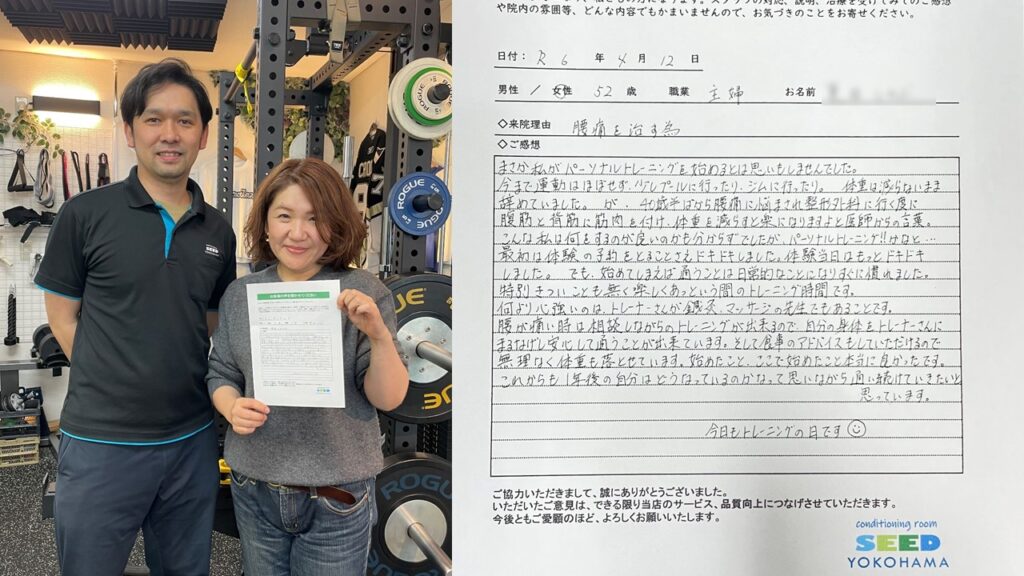 SEED
ROGUE
ROGUE
ROGUE
ROGUE
や院内の雰囲気等、どんな内容でもかまいませんので、お気づきのことをお寄せください。
日付： R6 年 4 月 12 日
男性 / 女性 52 歳 職業 主婦 お名前
◇来院理由 腰痛を治す為
◇ご感想
まさか私がパーソナルトレーニングを始めるとは思いもしませんでした。
今まで運動はほぼせず、少しプールに行ったり、ジムに行ったり。 体重は減らないまま
辞めていました。が、40歳半ばから腰痛に悩まされ整形外科に行く度に
腹筋と背筋に筋肉を付け、体重を減らすと楽になりますよと医師からの言葉。
こんな私は何をするのが良いのかも分からずでしたが、パーソナルトレーニング!!かなと…
最初は体験の予約をとることさえドキドキしました。体験当日はもっとドキドキ
しました。 でも、始めてしまえば通うことは日常的なことになりすぐに慣れました。
特別きついことも無く楽しくあっという間のトレーニング時間です。
何より心強いのは、トレーナーさんが鍼灸、マッサージの先生でもあることです。
腰が痛い時は相談しながらのトレーニングが出来るので、自分の身体をトレーナーさんに
まるなげし安心して通うことが出来ています。そして食事のアドバイスもしていただけるので
無理なく体重も落とせています。始めたこと、ここで始めたこと本当に良かったです。
これからも1年後の自分はどうなっているのかなって思いながら通い続けていきたいと
思っています。
今日もトレーニングの日です☺
ご協力いただきまして、誠にありがとうございました。
いただいたご意見は、できる限り当店のサービス、品質向上につなげさせていただきます。
今後ともご愛顧のほど、よろしくお願いいたします。
conditioning room
SEED
YOKOHAMA